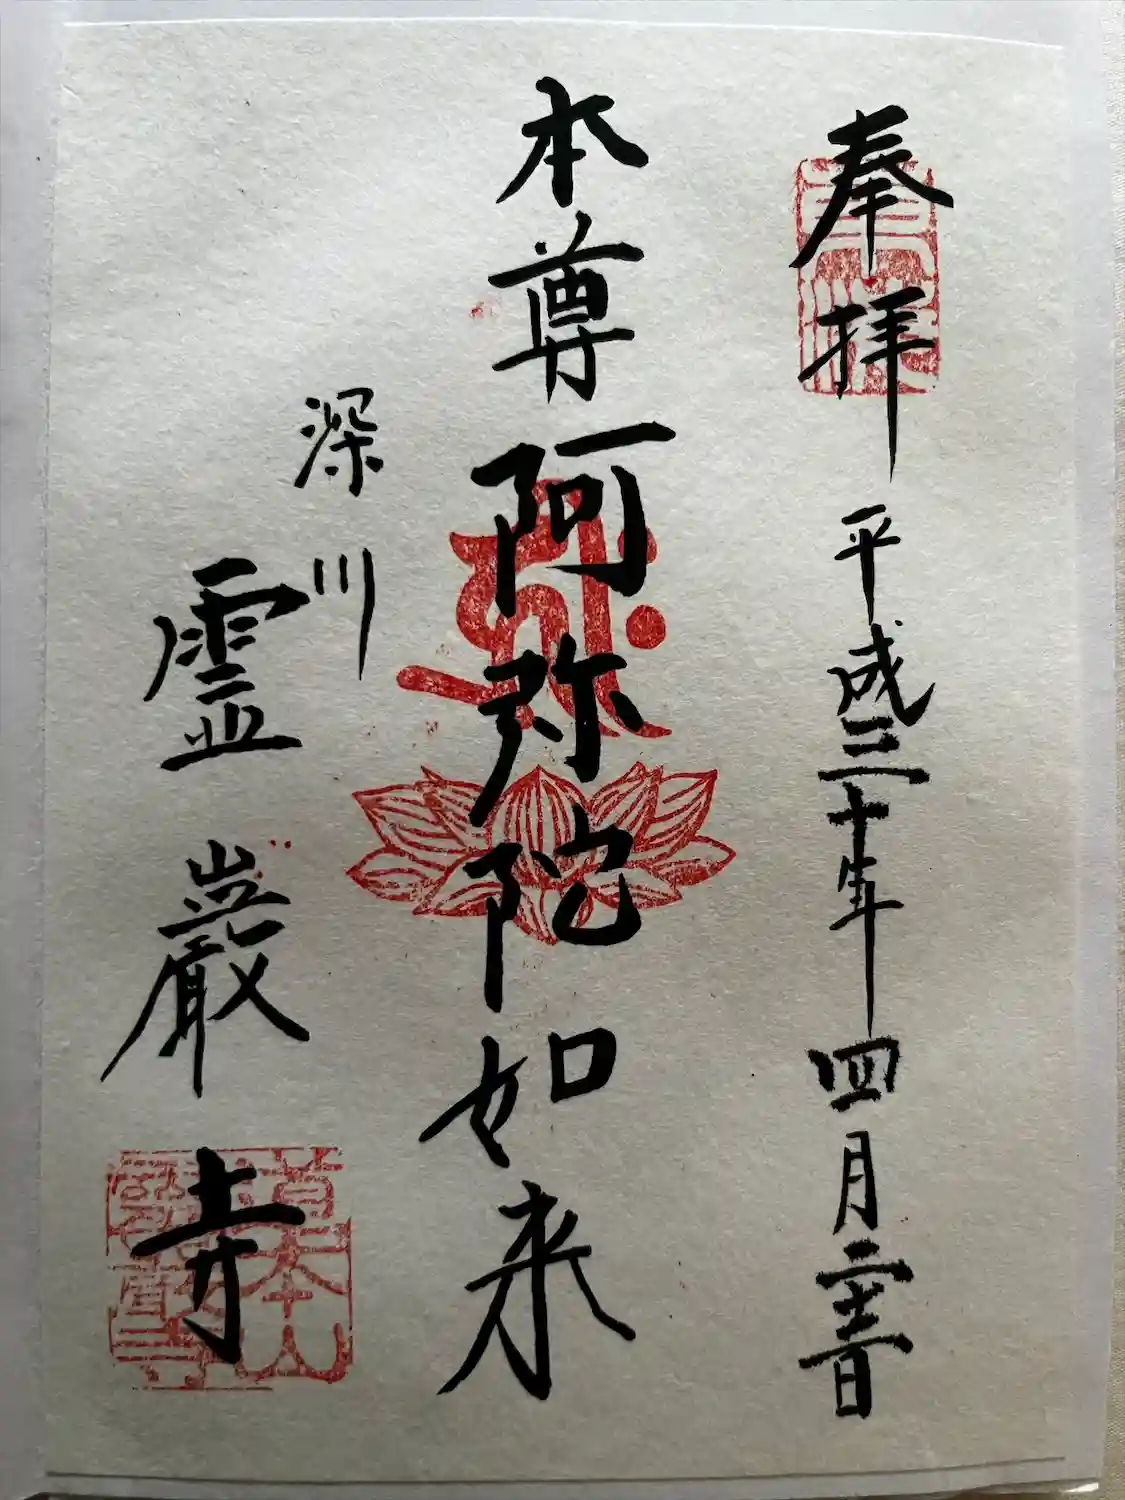 奉拝
平成三十年四月二十二日
本尊阿弥陀如来
深川
霊巌寺
道本山